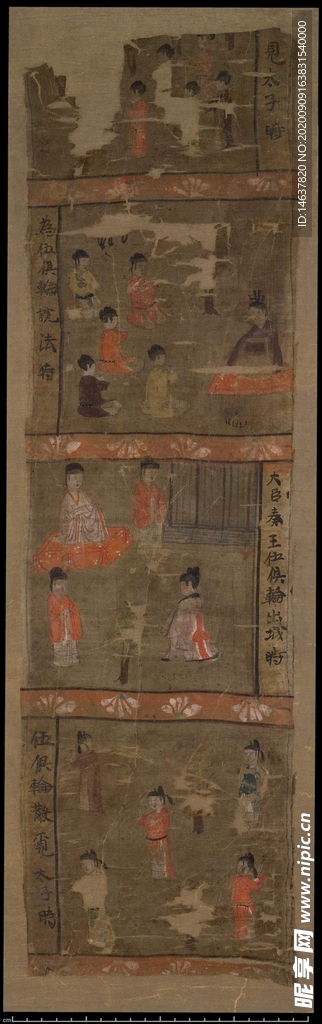 見太子時
為伍俱輪說法時
大臣奏王伍俱輪出城時
伍俱輪散覓太子時
cm
昵享网 www.nipic.cn
ID:14637820 NO:20200909163831540000